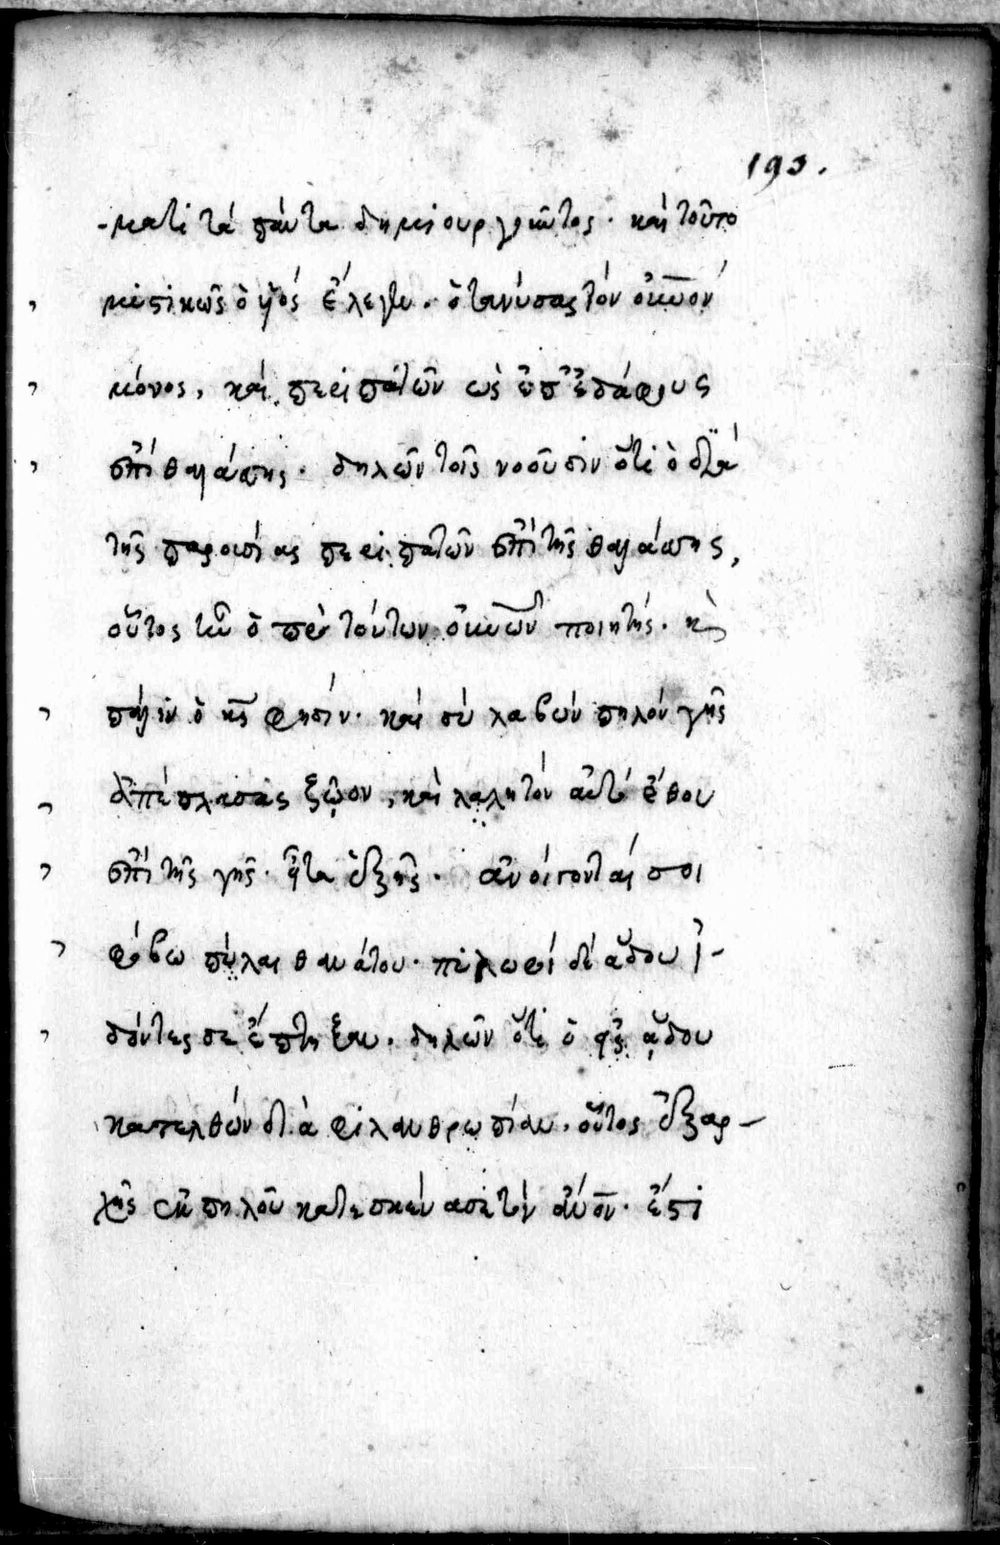 193.
-ματι τὰ πάντα δημιουργοῦντος. καὶ τοῦτο
μυστικῶς ὁ ἰὼβ ἔλεγεν. ὁ τανύσας τὸν οὐνον
μόνος, καὶ περιπατῶν ὡς ἐπ' ἐδάφους
ἐπὶ θαλάσσης. δηλῶν τοῖς νοοῦσιν ὅτι ὁ διὰ
τῆς παρουσίας περιπατῶν ἐπὶ τῆς θαλάσσης,
οὗτος ἦν ὁ πρὸ τούτων οὐνῶν ποιητής. κὲ
πάλιν ὁ κς φησίν. καὶ σὺ λαβὼν πηλὸν γῆς
ἔπλασας ζῷον, καὶ λαλητὸν αὐτὸ ἔθου
ἐπὶ τῆς γῆς. εἶτα ἑξῆς. ἀνοίγονταί σοι
φόβω πύλαι θανάτου. πυλωροὶ δὲ ἅδου ἰ-
δόντες σε ἔπτηξαν. δηλῶν ὅτι ὁ εἰς ἅδου
κατελθὼν διὰ φιλανθρωπίαν, οὗτος ἐξαρ-
χῆς ἐκ πηλοῦ κατεσκεύασε τὸν ἄνον. ἔτι